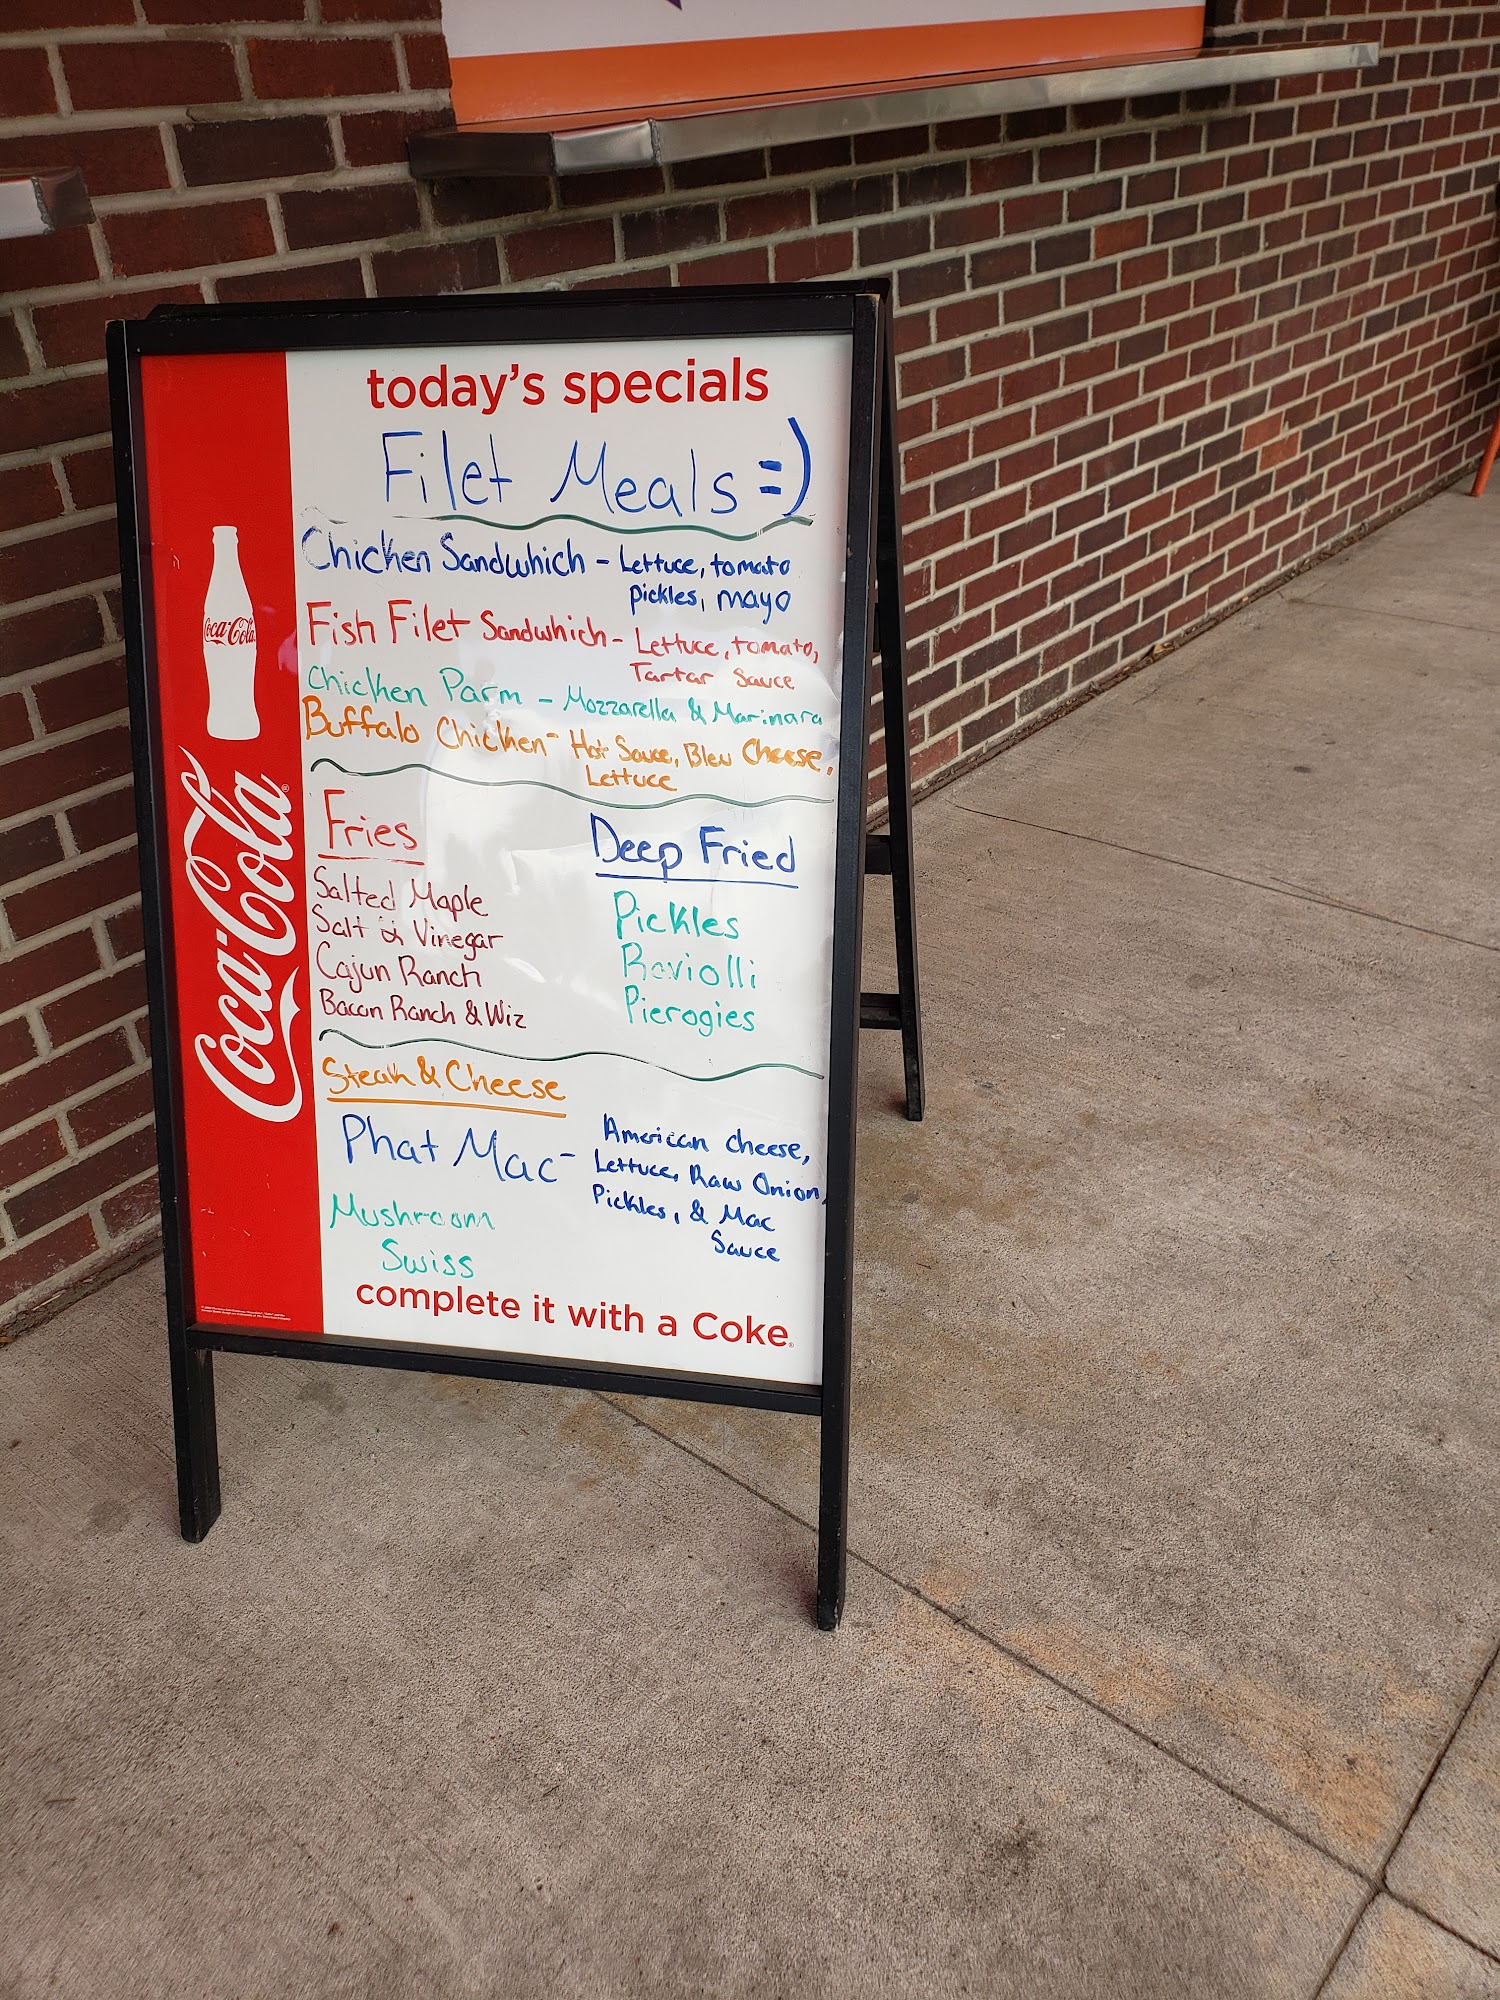 today's specials
Filet Meals =)
Chicken Sandwhich - Lettuce, tomato
pickles, mayo
Fish Filet Sandwhich - Lettuce, tomato,
Tartar Sauce
Chicken Parm - Mozzarella & Marinara
Buffalo Chicken - Hot Sauce, Bleu Cheese,
Lettuce
Fries
Salted Maple
Salt & Vinegar
Cajun Ranch
Bacon Ranch & Wiz
Deep Fried
Pickles
Raviolli
Pierogies
Steak & Cheese
Phat Mac - American cheese,
Lettuce, Raw Onion,
Pickles, & Mac
Sauce
Mushroom
Swiss
complete it with a Coke®
Coca-Cola
Coca-Cola®